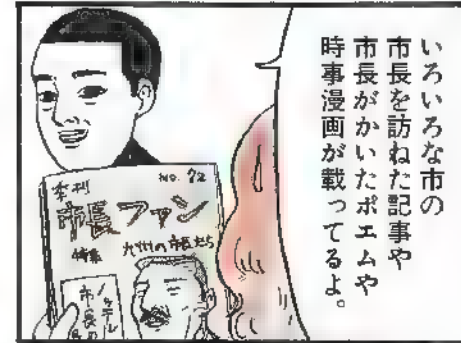 いろいろな市の
市長を訪ねた記事や
市長がかいたポエムや
時事漫画が載ってるよ。
季刊
NO. 72
市長ファン
特集
九州の市長たち
市長の